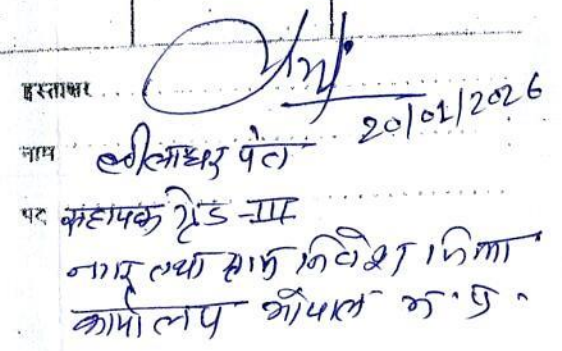 हस्ताक्षर
20/01/2026
नाम लीलाधर
पद सहायक ग्रेड-III
नगर तथा ग्राम निवेश जिला
कार्यालय भोपाल म.प्र.